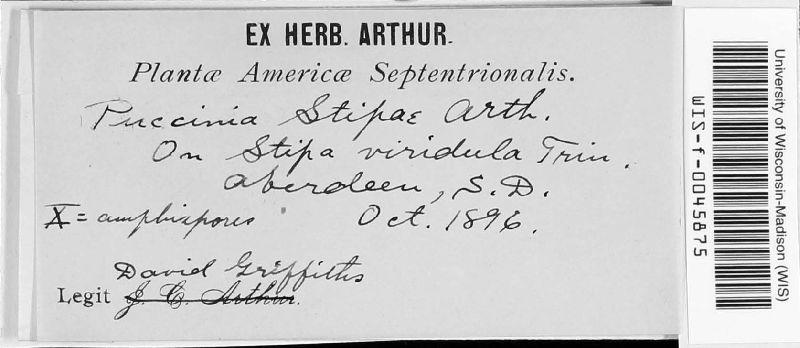 EX HERB. ARTHUR.
Plantæ Americæ Septentrionalis.
Puccinia Stipae Arth.
On Stipa viridula Trin.
Aberdeen, S.D.
X = amphispores Oct. 1896.
David Griffiths
Legit J. C. Arthur.
University of Wisconsin-Madison (WIS)
WIS-f-0045875